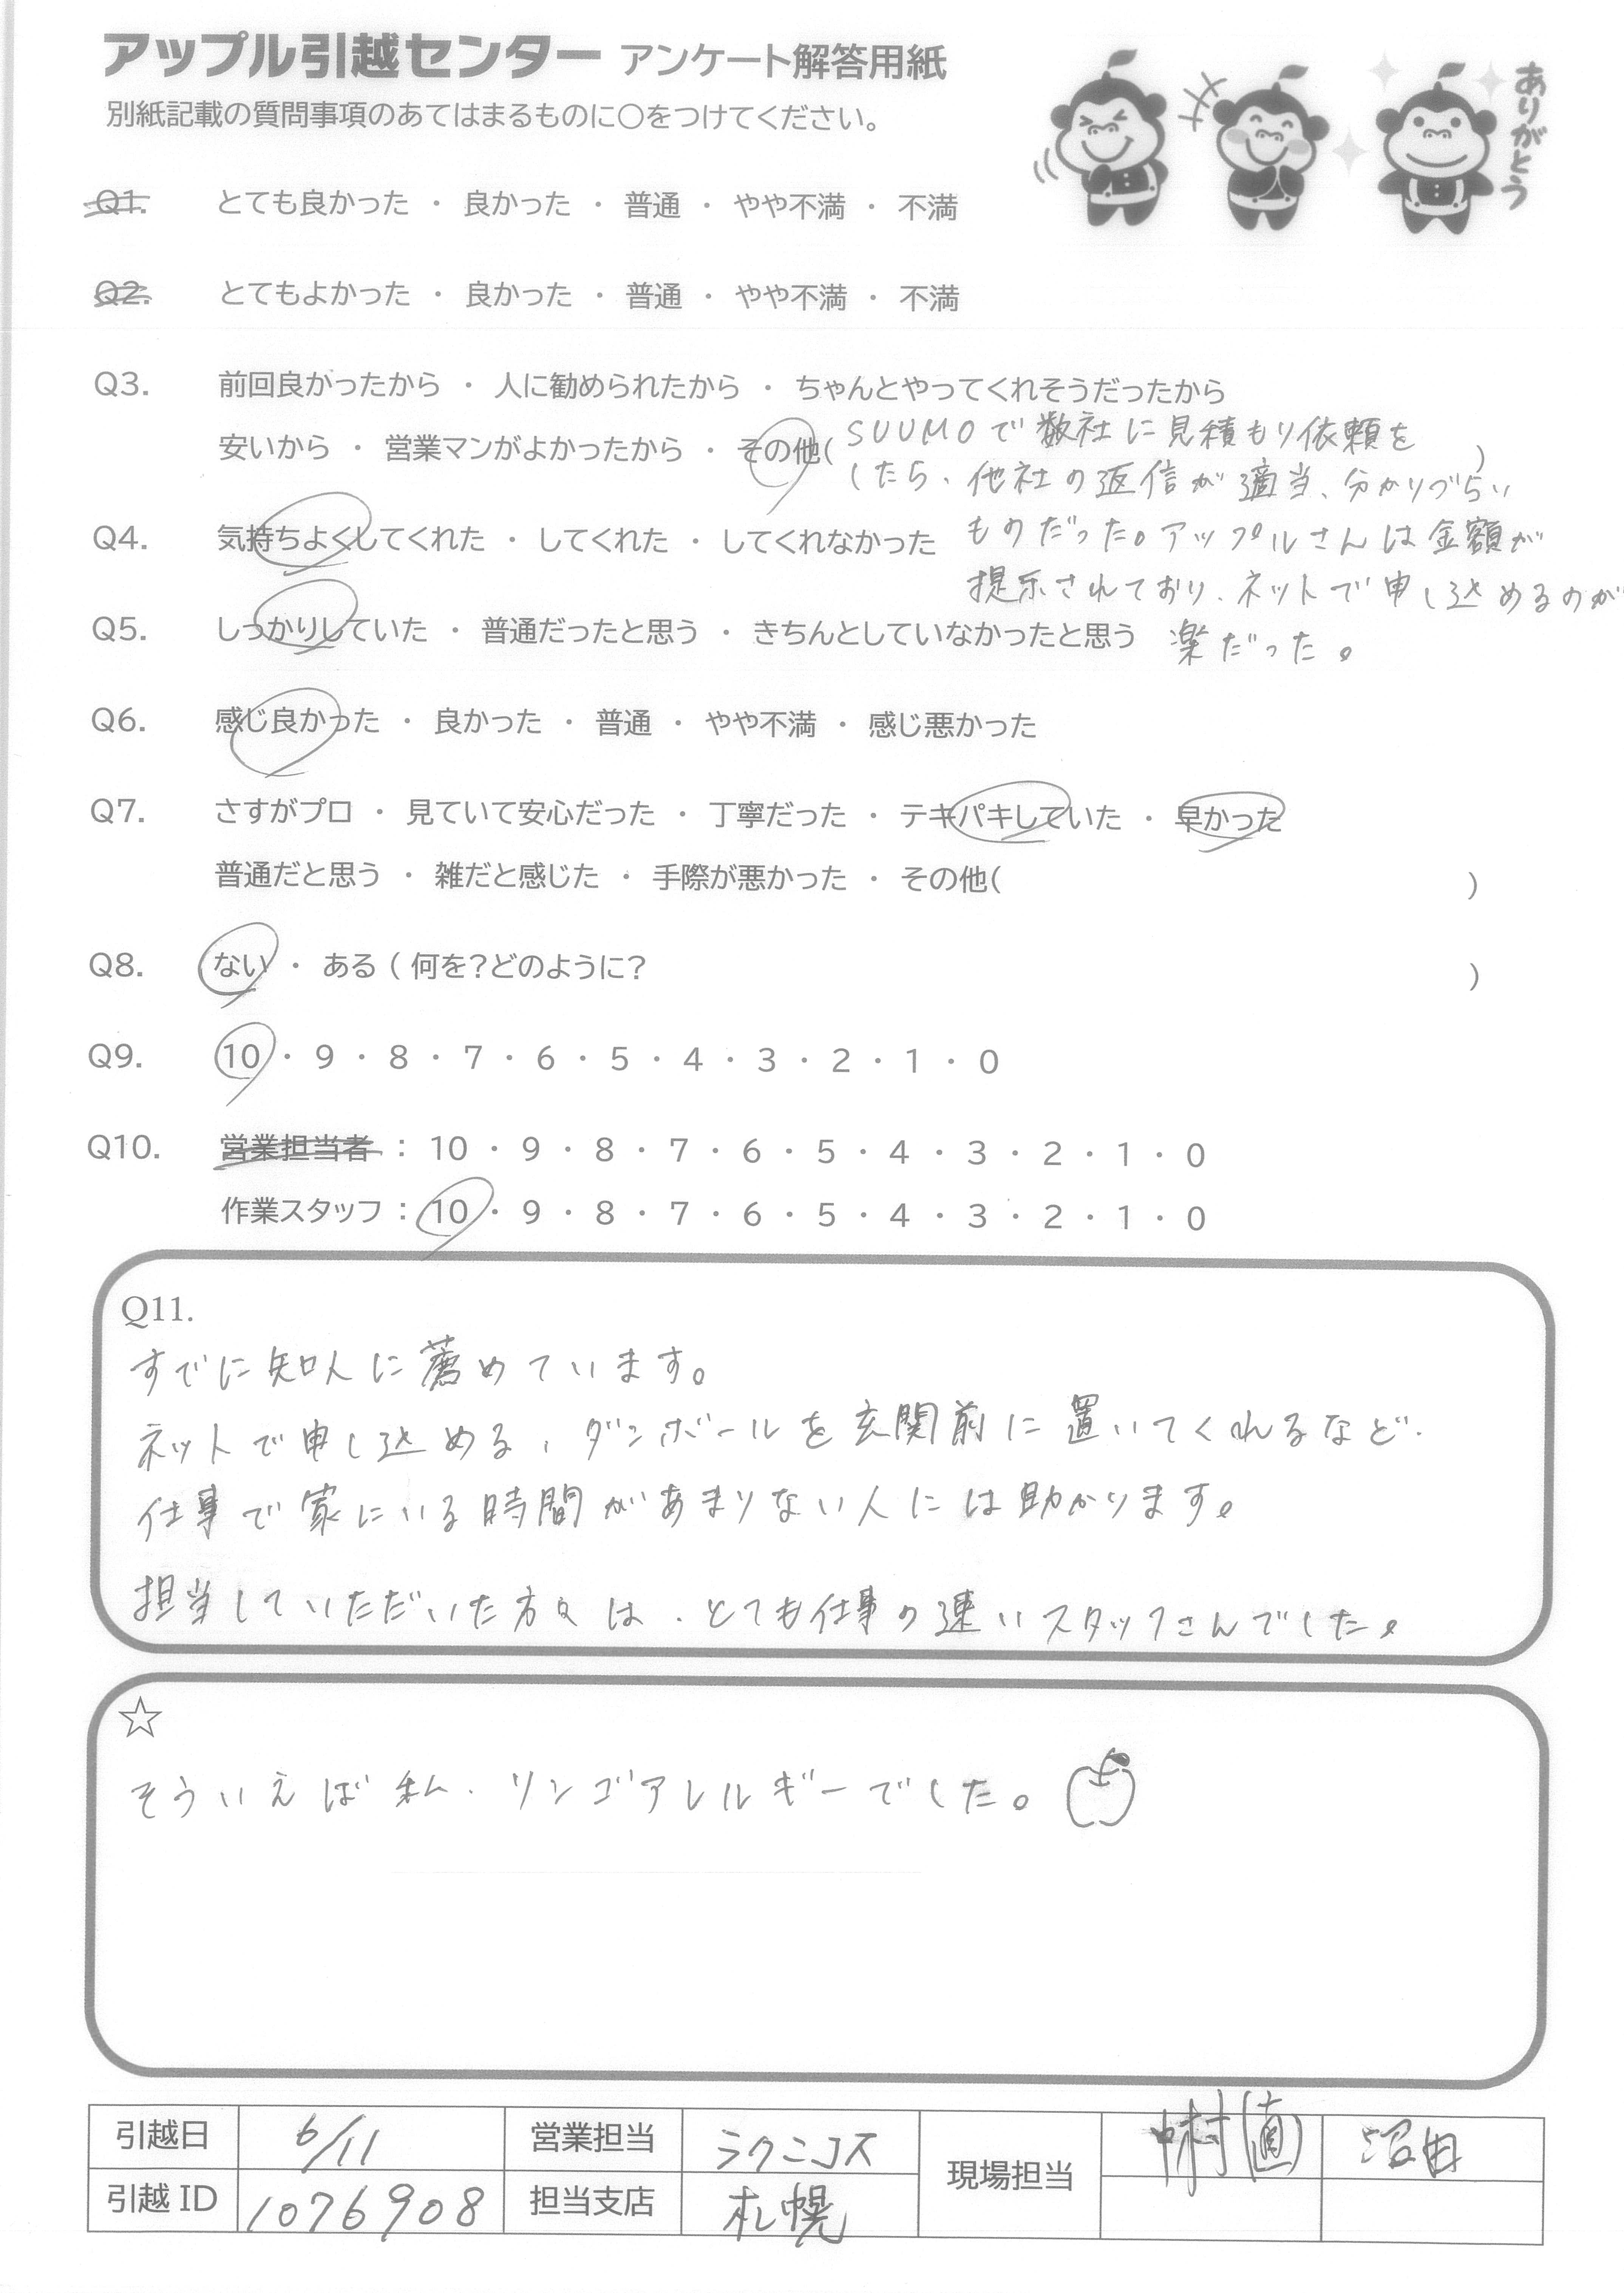 アップル引越センター アンケート解答用紙
別紙記載の質問事項のあてはまるものに○をつけてください。
ありがとう
Q1. とても良かった ・ 良かった ・ 普通 ・ やや不満 ・ 不満
Q2. とてもよかった ・ 良かった ・ 普通 ・ やや不満 ・ 不満
Q3. 前回良かったから ・ 人に勧められたから ・ ちゃんとやってくれそうだったから
安いから ・ 営業マンがよかったから ・ その他( SUUMOで数社に見積もり依頼を )
したら、他社の返信が適当、分かりづらい
Q4. 気持ちよくしてくれた ・ してくれた ・ してくれなかった
ものだった。アップルさんは金額が
提示されており、ネットで申し込めるのが
Q5. しっかりしていた ・ 普通だったと思う ・ きちんとしていなかったと思う
楽だった。
Q6. 感じ良かった ・ 良かった ・ 普通 ・ やや不満 ・ 感じ悪かった
Q7. さすがプロ ・ 見ていて安心だった ・ 丁寧だった ・ テキパキしていた ・ 早かった
普通だと思う ・ 雑だと感じた ・ 手際が悪かった ・ その他( )
Q8. ない ・ ある ( 何を?どのように? )
Q9. 10 ・ 9 ・ 8 ・ 7 ・ 6 ・ 5 ・ 4 ・ 3 ・ 2 ・ 1 ・ 0
Q10. 営業担当者 : 10 ・ 9 ・ 8 ・ 7 ・ 6 ・ 5 ・ 4 ・ 3 ・ 2 ・ 1 ・ 0
作業スタッフ : 10 ・ 9 ・ 8 ・ 7 ・ 6 ・ 5 ・ 4 ・ 3 ・ 2 ・ 1 ・ 0
Q11.
すでに知人に薦めています。
ネットで申し込める、ダンボールを玄関前に置いてくれるなど、
仕事で家にいる時間があまりない人には助かります。
担当していただいた方々は、とても仕事の速いスタッフさんでした。
☆
そういえば私、リンゴアレルギーでした。
引越日 6/11 営業担当 ラクニコス 現場担当 中村(直) 沼田
引越ID 1076908 担当支店 札幌